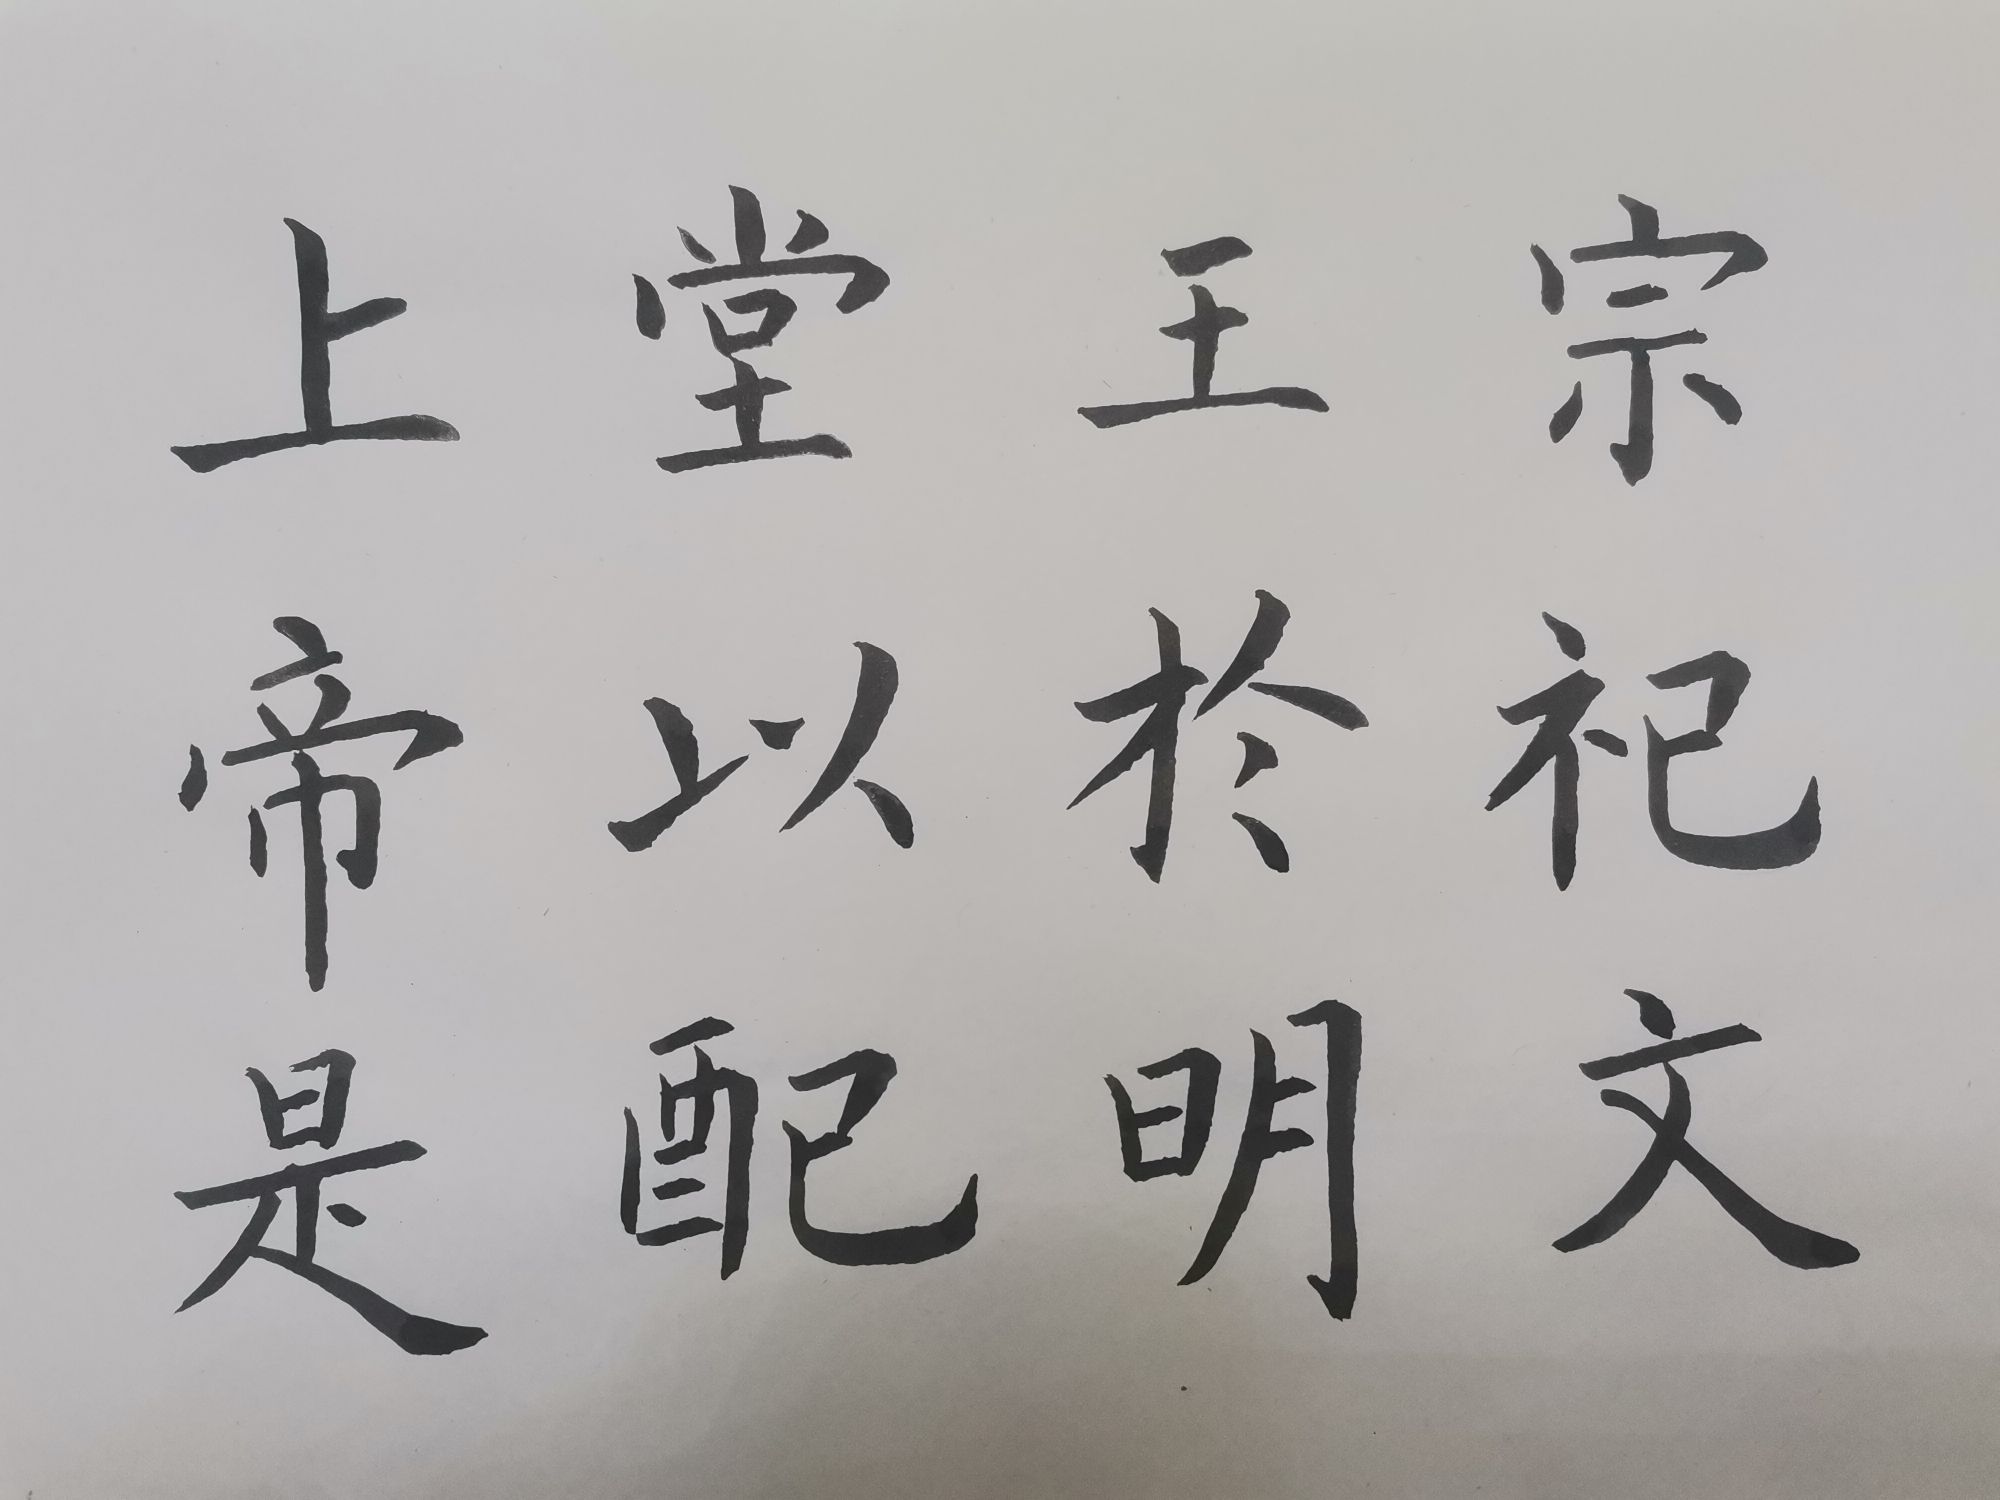 宗祀文
王於明
堂以配
上帝是